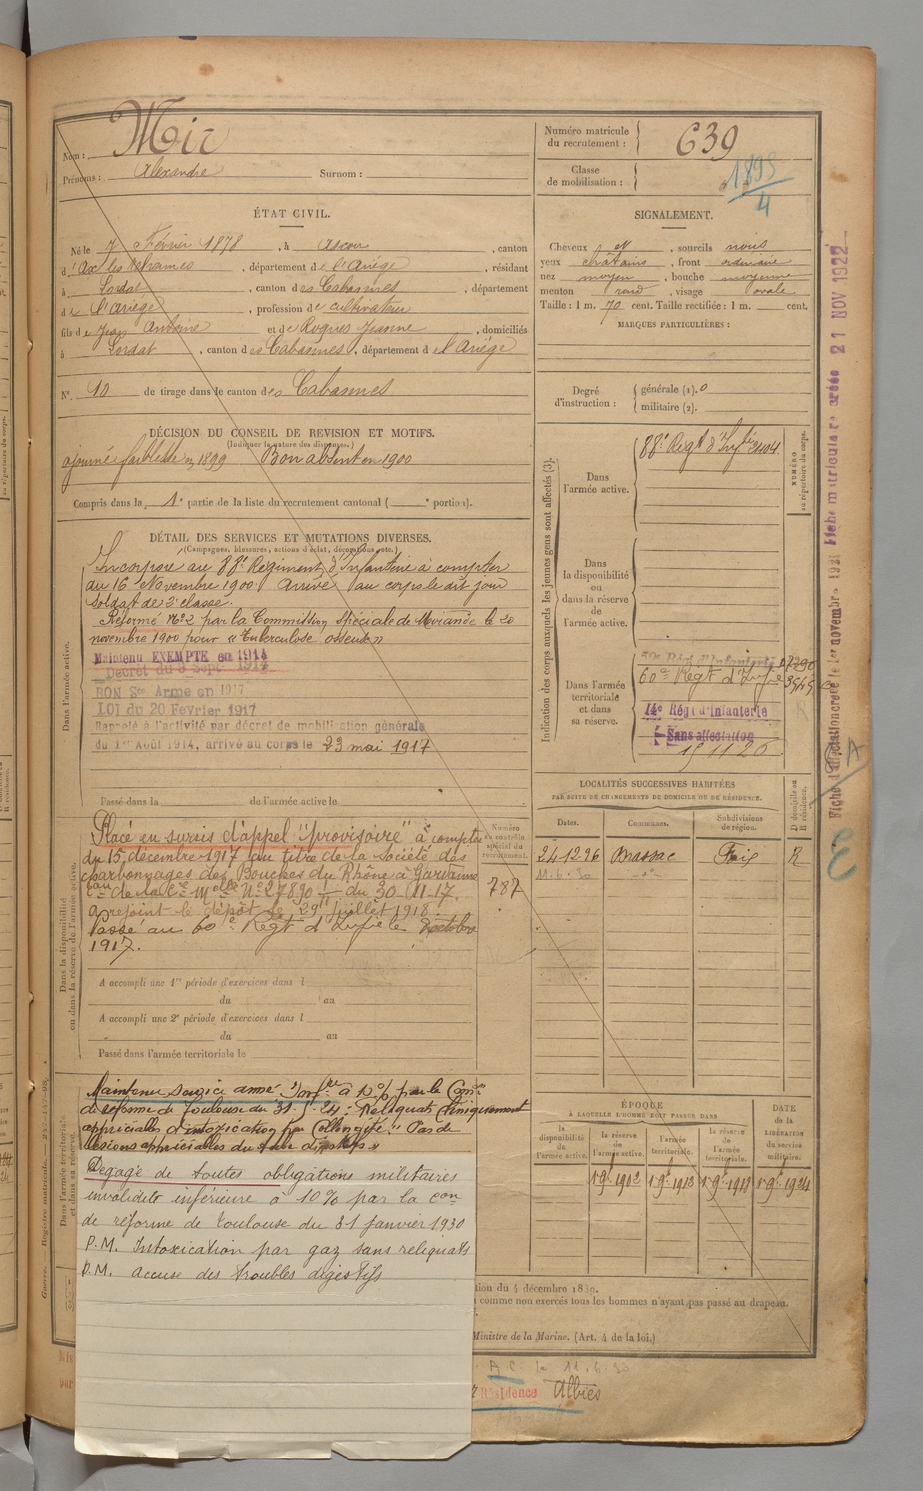 Nom : Mir
Prénoms : Alexandre Surnom :
Numéro matricule
du recrutement : 639
Classe
de mobilisation : 1895
4
ÉTAT CIVIL.
Né le 7 Février 1878, à Ascou, canton
d'Ax les Thermes, département de l'Ariège, résidant
à Lordat, canton des Cabannes, département
de l'Ariège, profession de cultivateur
fils de Jean Antoine et de Roques Jeanne, domiciliés
à Lordat, canton des Cabannes, département de l'Ariège
N° 10 de tirage dans le canton des Cabannes
DÉCISION DU CONSEIL DE REVISION ET MOTIFS.
(Indiquer la nature des dispenses.)
ajourné faiblesse en 1899 Bon absent en 1900
Compris dans la 1e partie de la liste du recrutement cantonal ( e portion).
DÉTAIL DES SERVICES ET MUTATIONS DIVERSES.
(Campagnes, blessures, actions d'éclat, décorations, etc.)
Dans l'armée active.
Incorporé au 88e Régiment d'Infanterie à compter
du 16 Novembre 1900 Arrivé au corps le dit jour
Soldat de 2e classe.
Réformé N°2 par la Commission Spéciale de le 20
novembre 1900 pour « Tuberculose osseuse »
Maintenu EXEMPTÉ en 1914
Décret du 9 Sept. 1914
BON Sce Armé en 1917
LOI du 20 Février 1917
Rappelé à l'activité par décret de mobilisation générale
du 1er Août 1914, arrivé au corps le 23 mai 1917
Passé dans la de l'armée active le
Dans la disponibilité
ou dans la réserve de l'armée active.
Numéro
au contrôle
spécial du
recrutement.
787
Placé en sursis d'appel "provisoire" à compter
du 15 décembre 1917 au titre de la société des
charbonnages des Bouches du Rhône à Gardanne
Bau de la Cie Melle N° 27890 du 30-11-17.
a rejoint le dépôt le 29 juillet 1918.
Passé au 60e Régt d'Infie le octobre
1917.
A accompli une 1re période d'exercices dans l
du au
A accompli une 2e période d'exercices dans l
du au
Passé dans l'armée territoriale le
Dans l'armée territoriale
et dans sa réserve.
Maintenu Service armé Inv. à 10% par la Comon
de réforme de Toulouse du 31-5-24 : "Reliquats cliniquement
appréciables d'intoxication par Collongite." Pas de
lésions appréciables du tube digestif »
Dégagé de toutes obligations militaires
invalidité inférieure à 10% par la con
de réforme de Toulouse du 31 janvier 1930
P.M. Intoxication par gaz sans reliquats
D.M. accuse des troubles digestifs
SIGNALEMENT.
Cheveux N, sourcils noirs
yeux châtains, front ordinaire
nez moyen, bouche moyenne
menton rond, visage ovale
Taille : 1 m. 70 cent. Taille rectifiée : 1 m. cent.
MARQUES PARTICULIÈRES :
Degré
d'instruction :
générale (1). 0
militaire (2).
Indication des corps auxquels les jeunes gens sont affectés (3).
NUMÉRO
au répertoire du corps.
Dans
l'armée active.
88e Régt d'Infie 2404
Dans
la disponibilité
ou
dans la réserve
de
l'armée active.
Dans l'armée
territoriale
et dans
sa réserve.
59e Régt d'Infanterie
60e Régt d'Infie
14e Régt d'Infanterie
Sans affectation
15 11 26
LOCALITÉS SUCCESSIVES HABITÉES
PAR SUITE DE CHANGEMENTS DE DOMICILE OU DE RÉSIDENCE.
D domicile ou
R résidence.
Dates. Communes. Subdivisions
de région.
24-12-96 Brassac Foix R
11-6-30
ÉPOQUE
À LAQUELLE L'HOMME DOIT PASSER DANS
la
disponibilité
de
l'armée active.
la réserve
de
l'armée active.
l'armée
territoriale.
la réserve
de
l'armée
territoriale.
DATE
DE LA
LIBÉRATION
du service
militaire.
tion du 4 décembre 1889.
comme non exercés tous les hommes n'ayant pas passé au drapeau.
Ministre de la Marine. (Art. 4 de la loi.)
A C. le 11-6-30
Résidence Albiès
Fiche d'affectation créée le 1er novembre 1921 Fiche matriculaire créée 21 NOV 1922